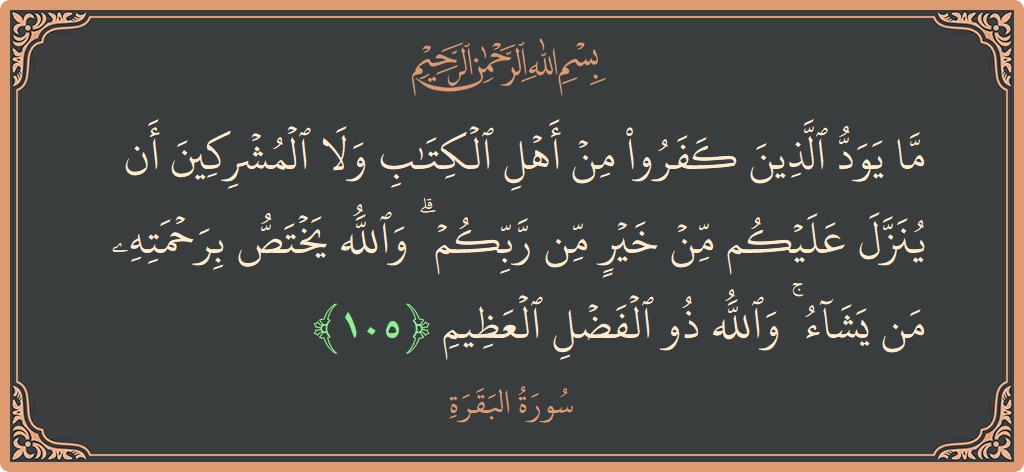 بِسْمِ اللهِ الرَّحْمٰنِ الرَّحِيْمِ
مَّا يَوَدُّ ٱلَّذِينَ كَفَرُوا۟ مِنۡ أَهۡلِ ٱلۡكِتَٰبِ وَلَا ٱلۡمُشۡرِكِينَ أَن
يُنَزَّلَ عَلَيۡكُم مِّنۡ خَيۡرٖ مِّن رَّبِّكُمۡۗ وَٱللَّهُ يَخۡتَصُّ بِرَحۡمَتِهِۦ
مَن يَشَآءُۚ وَٱللَّهُ ذُو ٱلۡفَضۡلِ ٱلۡعَظِيمِ ﴿١٠٥﴾
سُورَةُ البَقَرَةِ